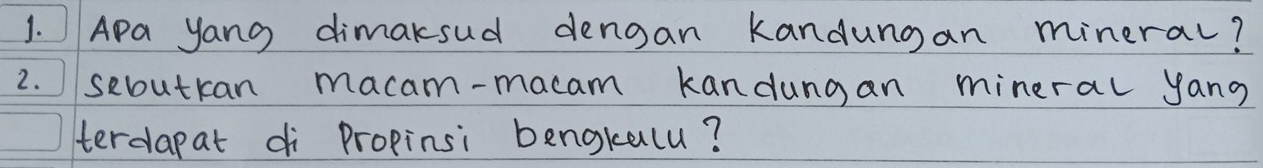 1. Apa yang dimaksud dengan kandungan mineral?
2. sebutkan macam-macam kandungan mineral yang
terdapat di Propinsi bengkulu?